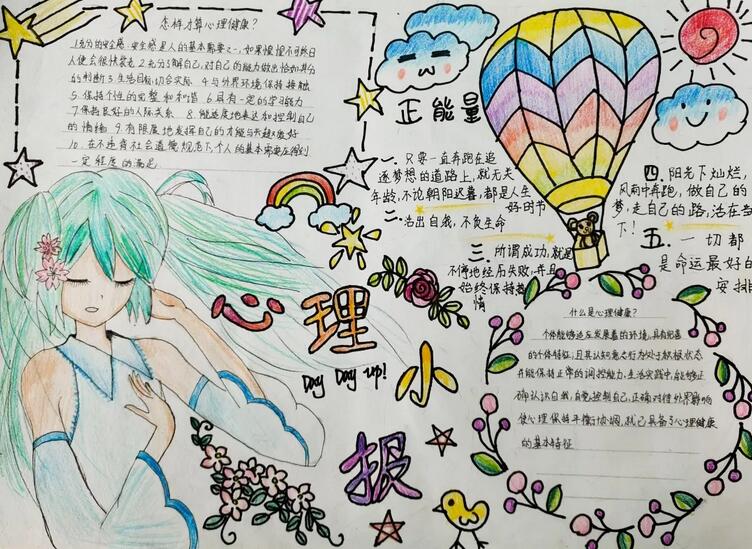 怎样才算心理健康?
1.充分的安全感.安全感是人的基本需要之一,如果惶惶不可终日
人便会很快衰老 2.充分了解自己,对自己的能力做出恰如其分
的判断 3.生活目标切合实际 4.与外界环境保持接触
5.保持个性的完整和和谐 6.具有一定的学习能力
7.保持良好的人际关系 8.能适度地表达和控制自己
的情绪 9.有限度地发挥自己的才能与兴趣爱好
10.在不违背社会道德规范下,个人的基本需要应得到
一定程度的满足
正能量
一.只要一直奔跑在追
逐梦想的道路上,就无关
年龄,不论朝阳迟暮,都是人生
好时节
二.活出自我,不负生命
三.所谓成功,就是
不停地经历失败,并且
始终保持热
情
四.阳光下灿烂,
风雨中奔跑,做自己的
梦,走自己的路,活在当
下!
五.一切都
是命运最好的
安排
心理小报
Day Day up!
什么是心理健康?
个体能够适应发展着的环境,具有完善
的个体特征;且其认知,情绪反应,意志行为处于积极状态
并能保持正常的调控能力.生活实践中,能够正
确认识自我,自觉控制自己,正确对待外界影响
使心理保持平衡协调,就已具备了心理健康
的基本特征